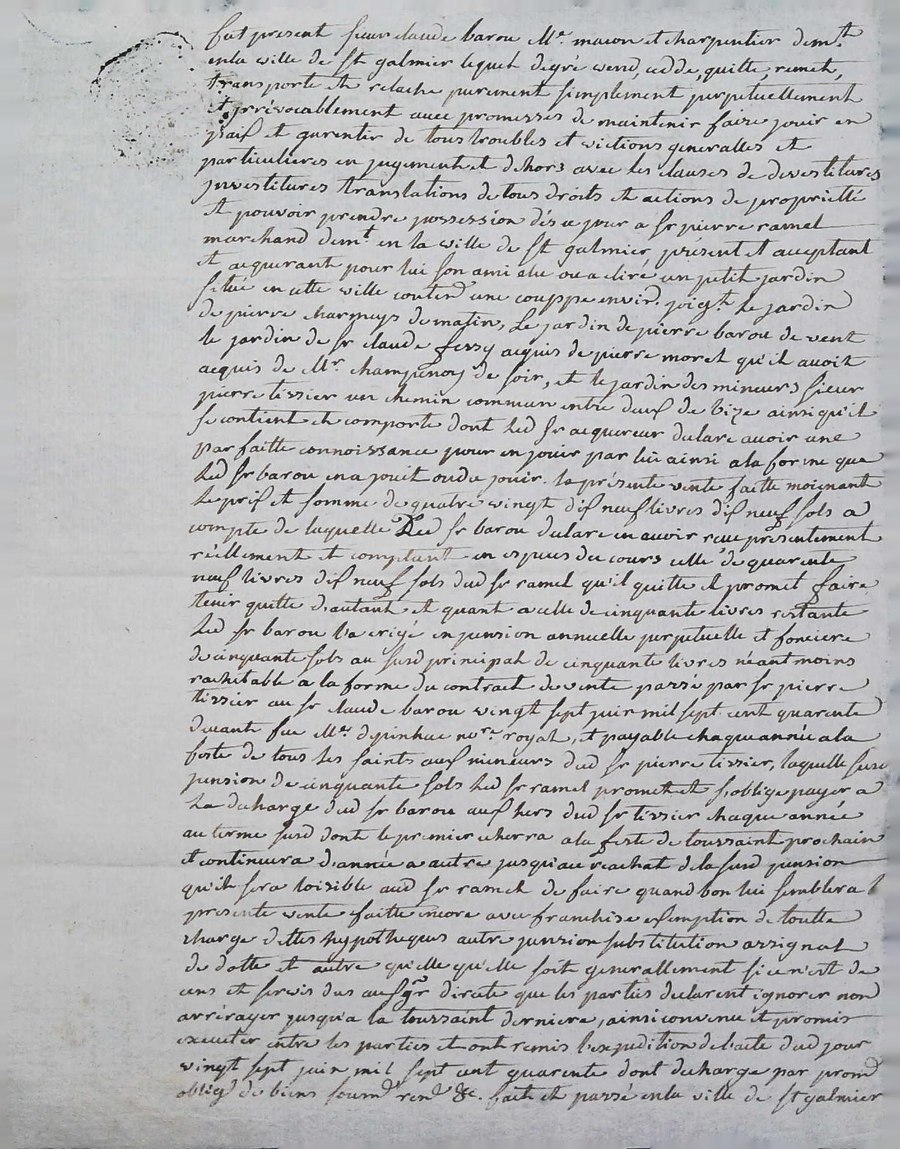 fut present sieur claude barou Me. macon et charpentier demt.
en la ville de st galmier lequel de gré vend, cedde, quitte, remet,
transporte et relache purement simplement perpetuellement
et irrévocablement avec promesses de maintenir faire jouir en
paix et garentir de tous troubles et evictions generalles et
particulieres en jugement et dehors avec les clauses de devestitures
investitures translations de tous droits et actions de proprietté
et pouvoir prendre possession dès ce jour a sr pierre ramel
marchand demt. en la ville de st galmier, présent et acceptant
et acquerant pour lui son ami élu ou a eliré un petit jardin
situé en cette ville contend. une couppe envir. joigt. le jardin
de pierre charmeys de matin, le jardin de pierre barou de vent
le jardin de sr claude fessy acquis de pierre moret qu'il avoit
acquis de Mr. champenoy de soir, et le jardin des mineurs sieur
pierre tissier un chemin commun entre deux de bize ainsi qu'il
se contient et comporte dont led sr acquereur declare avoir une
parfaitte connoissance pour en jouir par lui ainsi a la forme que
led sr barou en a jouit ou du jouir. la présente vente faitte moienant
le prix et somme de quatre vingt dix neuf livres dix neuf sols a
compte de laquelle Led sr barou declare en avoir reçu présentement
réellement et comptant en espèces du cours celle de quarente
neuf livres dix neuf sols dud sr ramel qu'il quitte et promet faire
tenir quitte d'autant et quant a celle de cinquante livres restante
led sr barou l'a erigé en pension annuelle perpetuelle et fonciere
de cinquante sols au susd principal de cinquante livres néantmoins
rachitable a la forme du contract de vente passé par sr pierre
tissier au sr claude barou vingt sept juin mil sept cent quarente
devante feu Me. dpunhac nore. royal, et payable chaque année a la
feste de tous les saints aux mineurs dud sr pierre tissier, laquelle susd
pension de cinquante sols led sr ramel promet et s'oblige payer a
la decharge dud sr barou aux hers dud sr tissier chaque année
au terme susd dont le premier echerra a la feste de toussaint prochain
et continuera d'année a autre jusqu'au réachat de la susd pension
qu'il sera loisible aud sr ramel de faire quand bon lui semblera l
présente vente faitte encore avec franchise exemption de toutte
charge dettes hypotheques autre pension substitution assignat
de dotte et autre qu'elle qu'elle soit generallement si ce n'est de
cens et servis dus au sgr directe que les parties declarent ignorer non
arrérager jusqu'a la toussaint derniere, ainsi convenu et promis
executer entre les parties et ont remis l'expedition de l'acte dud jour
vingt sept juin mil sept cent quarente dont decharge par promd
obligd de biens soumd rend &c. fait et passé en la ville de st galmier